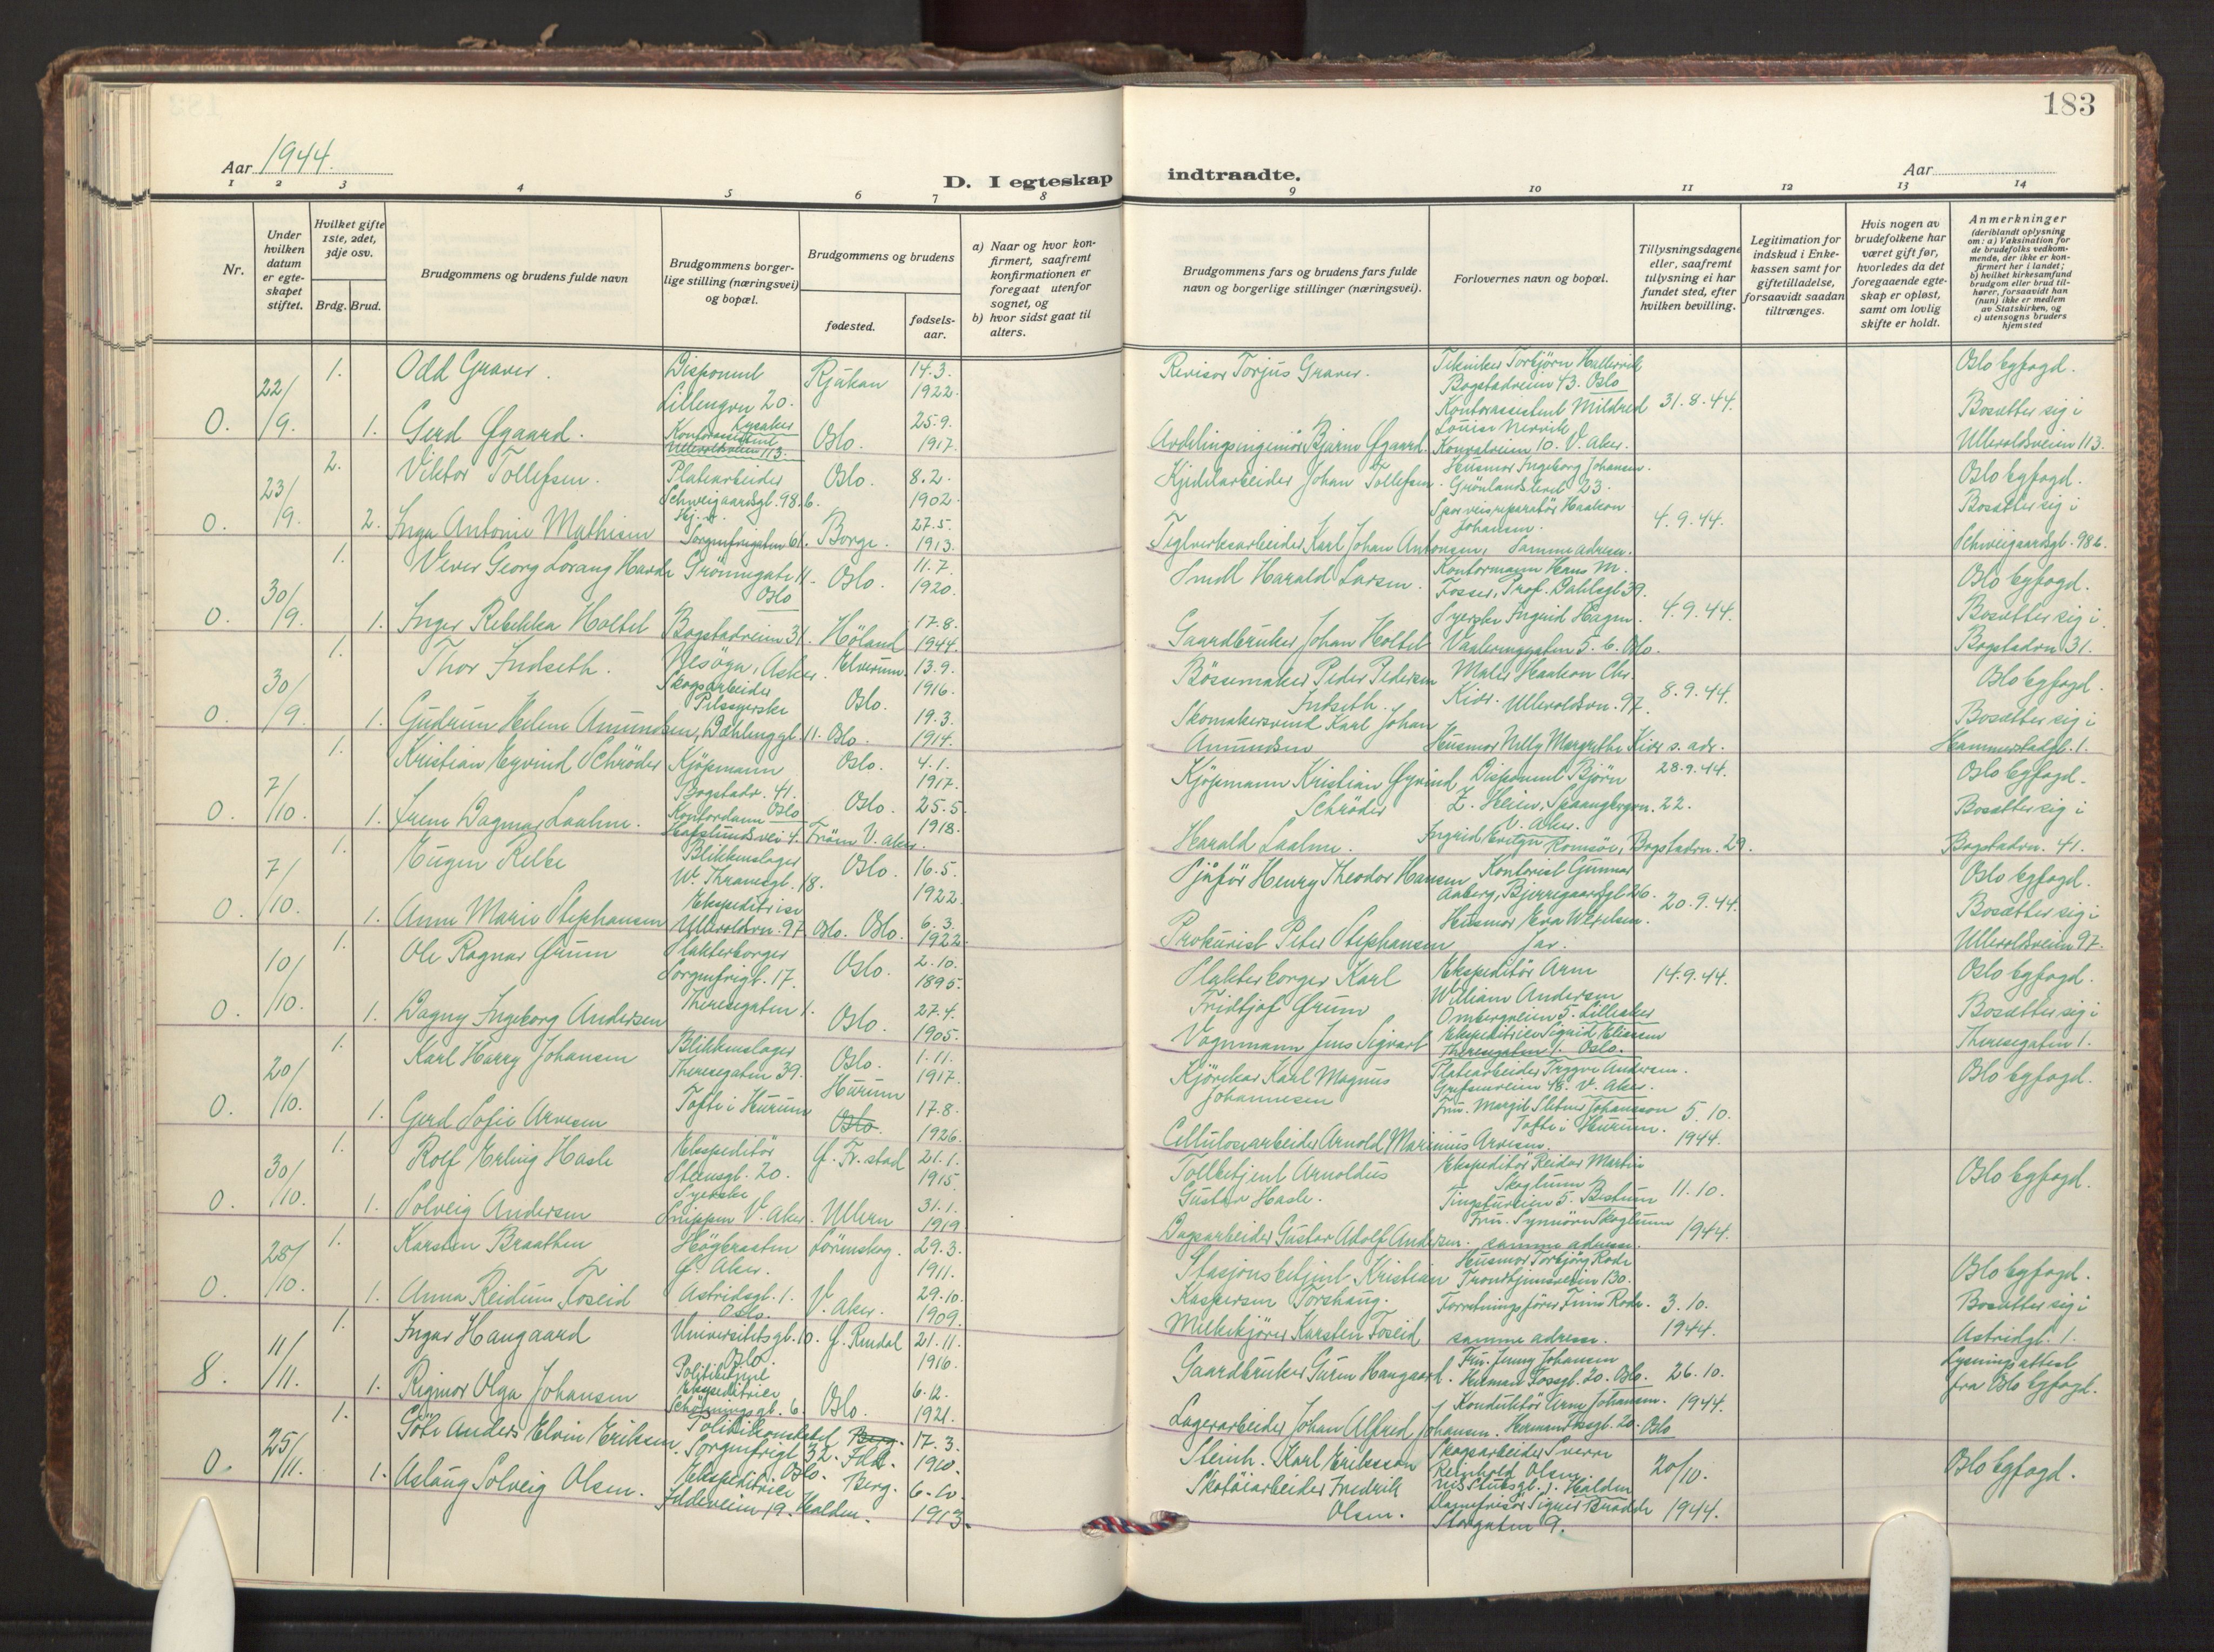 183
Aar 1944.
D. I egteskap indtraadte.
Aar
1 2 3 4 5 6 7 8 9 10 11 12 13 14
Nr.
Under hvilken datum er egteskapet stiftet.
Hvilket gifte 1ste, 2det, 3dje osv.
Brdg. Brud.
Brudgommens og brudens fulde navn
Brudgommens borgerlige stilling (næringsvei) og bopæl.
Brudgommens og brudens
fødested.
fødselsaar.
a) Naar og hvor konfirmert, saafremt konfirmationen er foregaat utenfor sognet, og
b) hvor sidst gaat til alters.
Brudgommens fars og brudens fars fulde navn og borgerlige stillinger (næringsvei).
Forlovernes navn og bopæl.
Tillysningsdagene eller, saafremt tillysning ei har fundet sted, efter hvilken bevilling.
Legitimation for indskud i Enkekassen samt for giftetilladelse, forsaavidt saadan tiltrænges.
Hvis nogen av brudefolkene har været gift før, hvorledes da det foregaaende egteskap er opløst, samt om lovlig skifte er holdt.
Anmerkninger
(deriblandt oplysning om: a) Vaksination for de brudefolks vedkommende, der ikke er konfirmert her i landet;
b) hvilket kirkesamfund brudgom eller brud tilhører, forsaavidt han (hun) ikke er medlem av Statskirken, og
c) utensogns bruders hjemsted
0. 22/9. 1. Odd Graver. Disponent Lillengvn 20. Lysaker Rjukan 14.3. 1922. Revisor Torjus Graver. Tekniker Torbjørn Bogstadveien 43. Oslo 31.8.44. Oslo byfogd.
1. Gerd Øgaard. Kontorassistent Ullevoldsveien 113. Oslo. 25.9. 1917. Avdelingsingeniør Bjarne Øgaard. Kontorassistent Mildred Louise Nervik 10. V. Aker. Bosætter sig i Ullevoldsveien 113.
0. 23/9. 2. Viktor Tollefsen. Platearbeider Schweigaardsgt. 98 b. Oslo. 8.2. 1902. Kjedelarbeider Johan Tollefsen. Husmor Ingeborg Johansen. Grønlandsleret 23. 4.9.44. Oslo byfogd.
2. Inga Antonie Mathisen Sorgenfrigaten 61. Borge. 27.5. 1913. Teglverksarbeider Karl Johan Antonsen. Sporveisreparatør Haakon Johansen. Samme adresse. Bosætter sig i Schweigaardsgt. 98 b.
0. 30/9. 1. Georg Lorang Grønnegate 11. Oslo Oslo. 11.7. 1920. Smed Harald Larsen. Kontormann Hans M. Fosser, Prof. Dahlsgt 39. 4.9.44. Oslo byfogd.
1. Inger Rebekka Holtet Bogstadveien 31. Høland 17.8. 1944. Gaardbruker Johan Holtet Syerske Ingrid Hagen. Vaaleringgaten 5. b. Oslo. Bosætter sig i. Bogstadvn 31.
0. 30/9. 1. Thor Indseth. Nesøya, Asker. Skogsarbeider Elverum. 13.9. 1916. Bøssemaker Peder Pedersen Indseth. Maler Haakon Chr. Kiær. Ullevoldsvn. 97. 8.9.44. Oslo byfogd.
1. Gudrun Helene Amundsen, Pelssyerske Dæhlenggt. 11. Oslo. Oslo. 19.3. 1914. Skomakersvend Karl Johan Amundsen Husmor Nelly Margrethe Kiær s. adr. Bosætter sig i Hammerstadgt. 1.
0. 7/10. 1. Kristian Eyvind Schrøder Kjøpmann Bogstadv. 41. Oslo Oslo. 4.1. 1917. Kjøpmann Kristian Øyvind Schrøder Disponent Bjørn Z. Heier, Spaangbergvn. 22. V. Aker. 28.9.44. Oslo byfogd.
1. Irene Dagmar Laahne. Kontordame Hafslundsvei 4. Frøen V. Aker. Oslo. 25.5. 1918. Harald Laahne. Ingrid Evelyn Romsöe, Bogstadvn. 29. Bosætter sig i Bogstadvn. 41.
0. 7/10. 1. Eugen Relbe Blikkenslager W. Thranesgt. 18. Oslo. 16.5. 1922. Sjåfør Henry Theodor Hansen Kontorist Gunnar Aaberg, Bjerregaardsgt 26. 20.9.44. Oslo byfogd.
1. Anne Marie Stephansen Ekspeditrise Ullevoldsvn. 97. Oslo. Oslo. 6.3. 1922. Prokurist Peter Stephansen Husmor Eva Wexelsen. Jar. Bosætter sig i Ullevoldsveien 97.
0. 10/10. 1. Ole Ragnar Grum Slakterborger Sorgenfrigt. 17. Oslo. 2.10. 1895. Slakterborger Karl Fridtjof Grum Ekspeditør Arne William Andersen Ombergveien 5. Lilleaker 14.9.44. Oslo byfogd.
1. Dagny Ingeborg Andersen Theresegaten 1. Oslo. 27.4. 1905. Vognmann Jens Sigvart Ekspeditrice Sigrid Eliassen Theresegaten 1. Oslo. Bosætter sig i Theresegaten 1.
0. 20/10. 1. Karl Harry Johansen Blikkenslager Theresegaten 39. Oslo. 1.11. 1917. Kjørekar Karl Magnus Johannesen Platearbeider Trygve Andersen. Grefsenveien 48. V. Aker. 5.10. 1944. Oslo byfogd.
1. Gerd Sofie Arvesen Tofte i Hurum Hurum Oslo. 17.8. 1926. Cellulosearbeider Arnold Marinius Arvesen. Fru. Margit Sletner Johansson Tofte i Hurum.
0. 30/10. 1. Rolf Erling Hasle Ekspeditør Stensgt. 20. G. Fr.stad 21.1. 1915 Tollbetjent Arnoldus Gustav Hasle. Ekspeditør Reidar Martin Skoglunn Tingstuveien 5. Bestum 11.10. 1944. Oslo byfogd.
1. Solveig Andersen Syerske Snippen V. Aker. Ullern 31.1. 1919. Dagsarbeider Gustav Adolf Andersen. Fru. Synnøve Skoglunn samme adresse.
0. 28/10. 1. Karsten Braathen Høybraaten Ø. Aker. Lørenskog. 29.3. 1911. Stasjonsbetjent Kristian Kaspersen Torshaug. Husmor Torbjørg Rode Trondhjemsveien 130. 3.10. 1944. Oslo byfogd.
1. Anna Reidun Foseid Astridsgt. 1. Oslo. V. Aker. 29.10. 1909. Melkekjører Karsten Foseid Forretningsfører Finn Rode. samme adresse. Bosætter sig i Astridgt. 1.
8. 11/11. 1. Ingar Haugaard Universitetsgt. 10. Oslo. Politibetjent Ø. Rendal 21.11. 1916. Gaardbruker Guren Haugaard. Fru. Jenny Johansen Herman Fossgt. 20. Oslo. 26.10. 1944. Lysningsattest fra Oslo byfogd.
1. Rigmor Olga Johansen Ekspeditrice Schøningsgt. 6. Oslo. 6.12. 1921. Lagerarbeider Johan Alfred Johansen. Konduktør Arne Johansen. Herman Fossgt. 20. Oslo
0. 25/11. 1. Göte Anders Elvin Eriksen. Politikonstabel Sorgenfrigt 32. Oslo. Berg. Fhld. 17.3. 1910. Steinh. Karl Eriksson Skogsarbeider Sverre Reinhold Olsen Nils Stubsgt. 1. Halden 20/10. 1944. Oslo byfogd.
1. Aslaug Solveig Olsen. Ekspeditrice Iddeveien 19. Halden. Berg. 6.10. 1913. Skotøiarbeider Fredrik Olsen. Damefrisør Signe Storgaten 9.